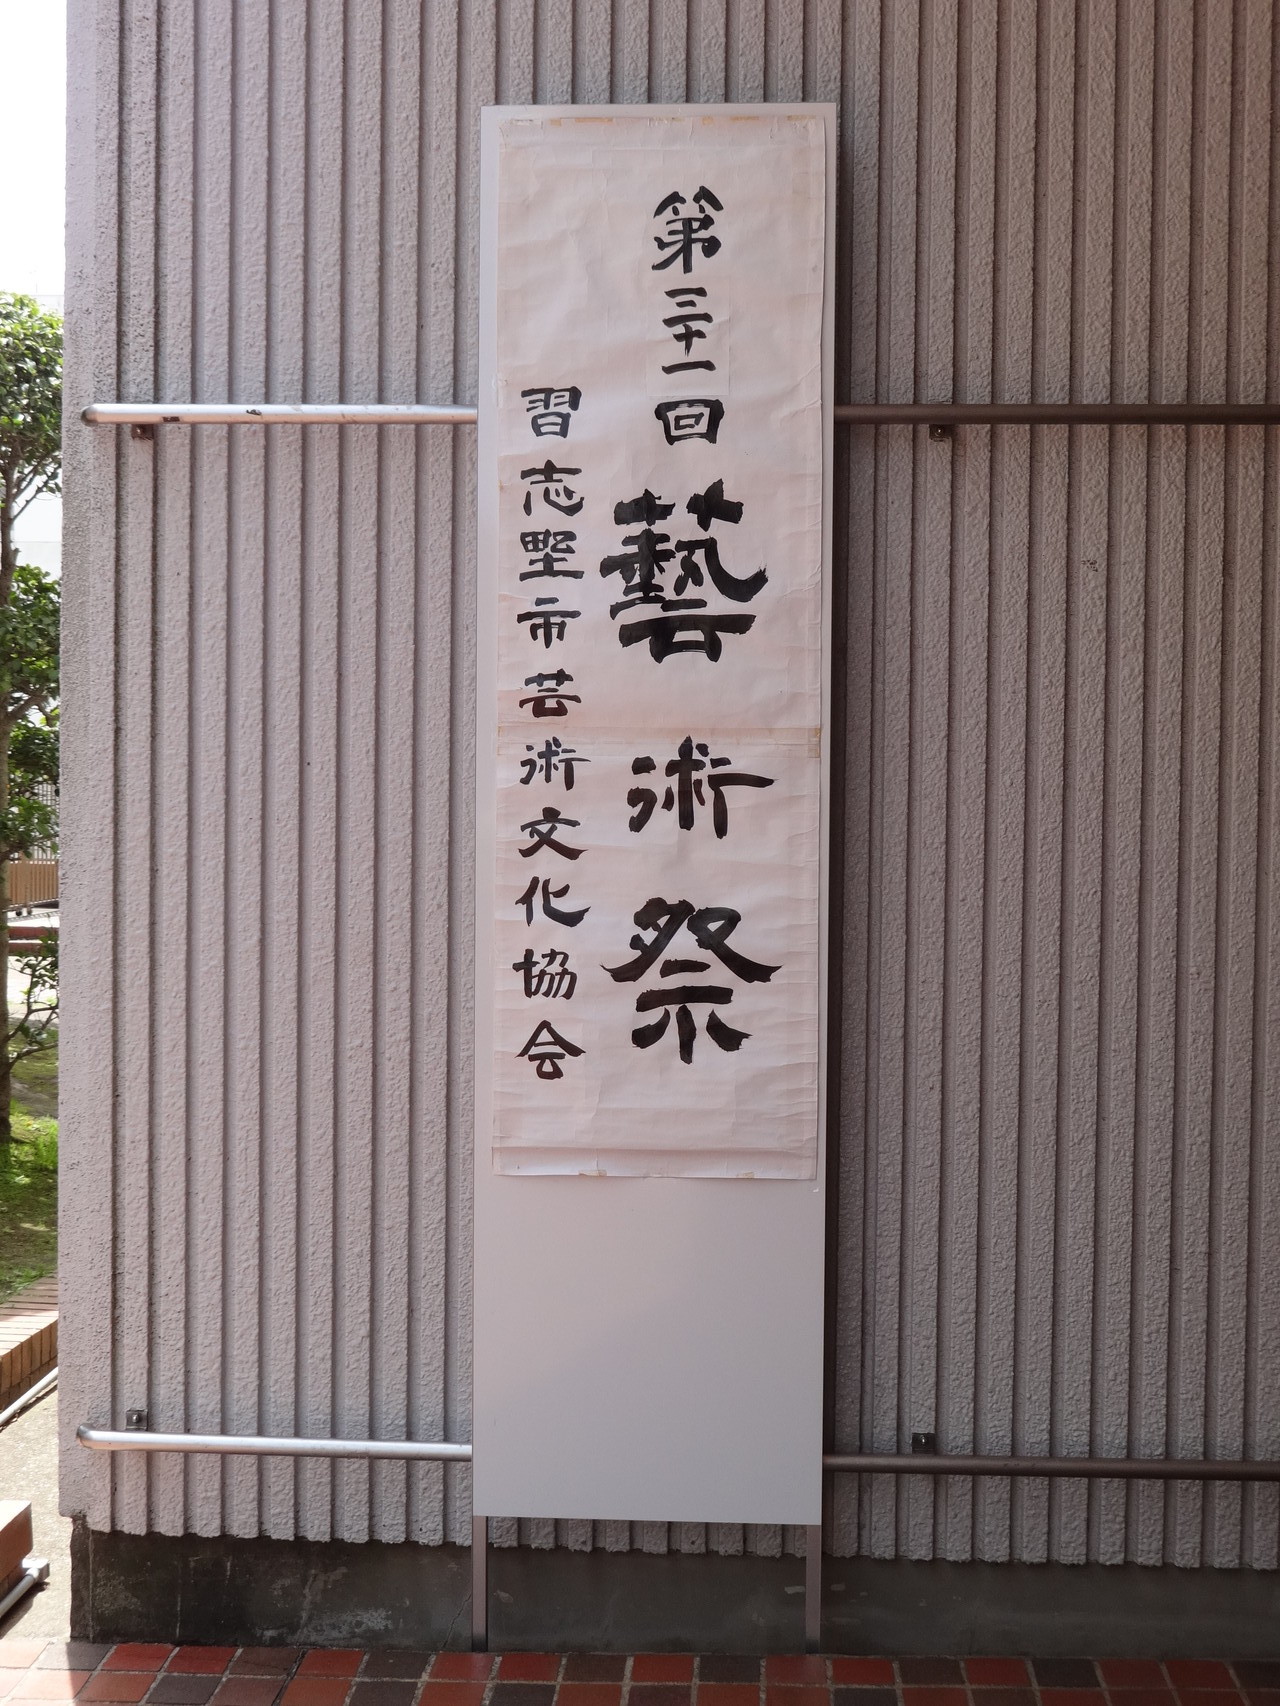 第三十一回藝術祭
習志野市芸術文化協会